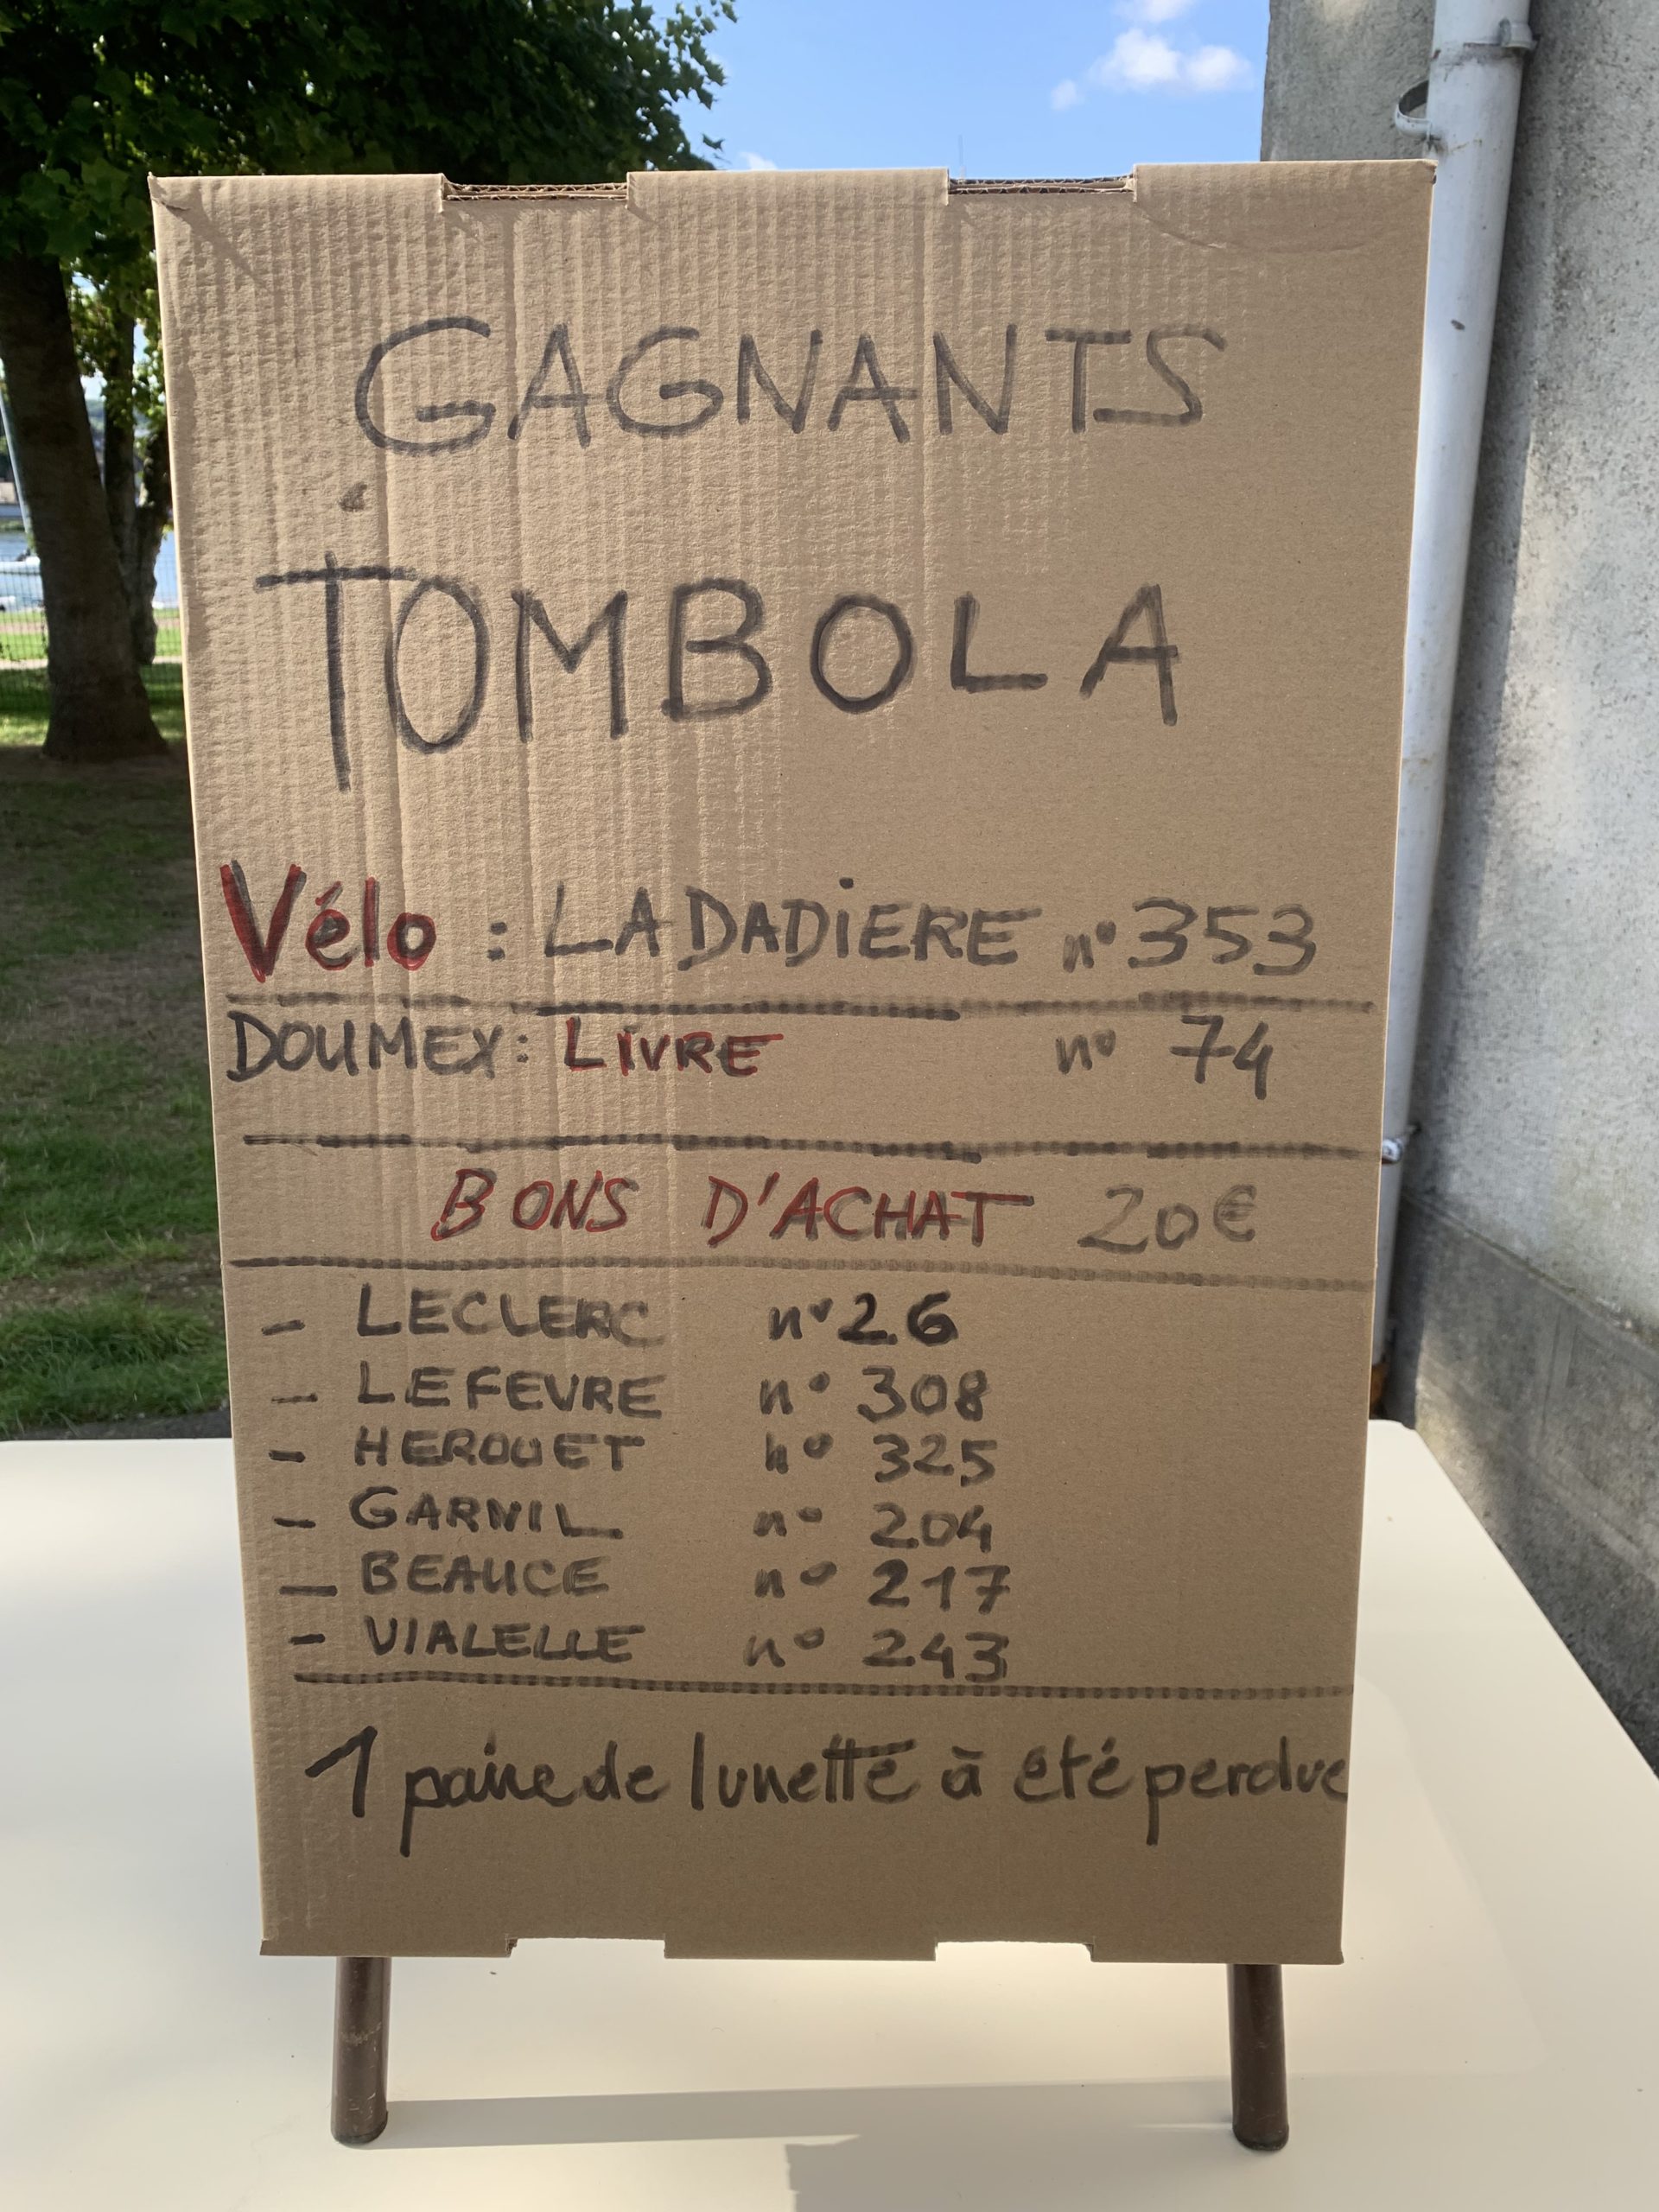 GAGNANTS
TOMBOLA
Vélo : LADADiERE n° 353
DOUMEX : LiVRE n° 74
BONS D'ACHAT 20€
- LECLERC n° 26
- LEFEVRE n° 308
- HEROUET n° 325
- GARNIL n° 204
- BEAUCE n° 217
- VIALELLE n° 243
1 paire de lunette à été perdue